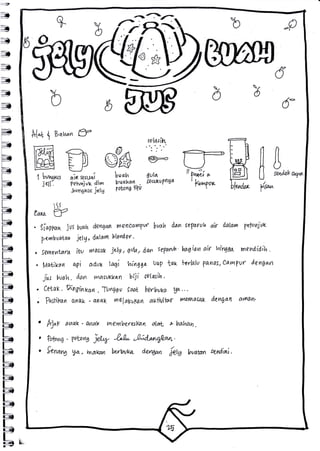 jely BUAH
JUS
Alat & Bahan
selasih
1 bungkus jeli
air sesuai petunjuk dlm bungkus jely
buah buahan potong kpl
gula secukupnya
panci & kompor
blender
pisau
sendok sayur
Cara
• Siapkan jus buah dengan mencampur buah dan separuh air dalam petunjuk
pembuatan jely, dalam blender.
• Sementara itu masak jely, gula, dan separuh bagian air hingga mendidih.
• Matikan api aduk lagi hingga uap tak terlalu panas, campur dengan
jus buah, dan masukkan biji selasih.
• Cetak. Dinginkan, Tunggu saat berbuka ya...
• Pastikan anak - anak melakukan aktivitas memasak dengan aman.
• Ajak anak - anak membereskan alat & bahan.
• Potong - potong jely lalu hidangkan.
• Senang ya, makan berbuka dengan jely buatan sendiri.
25